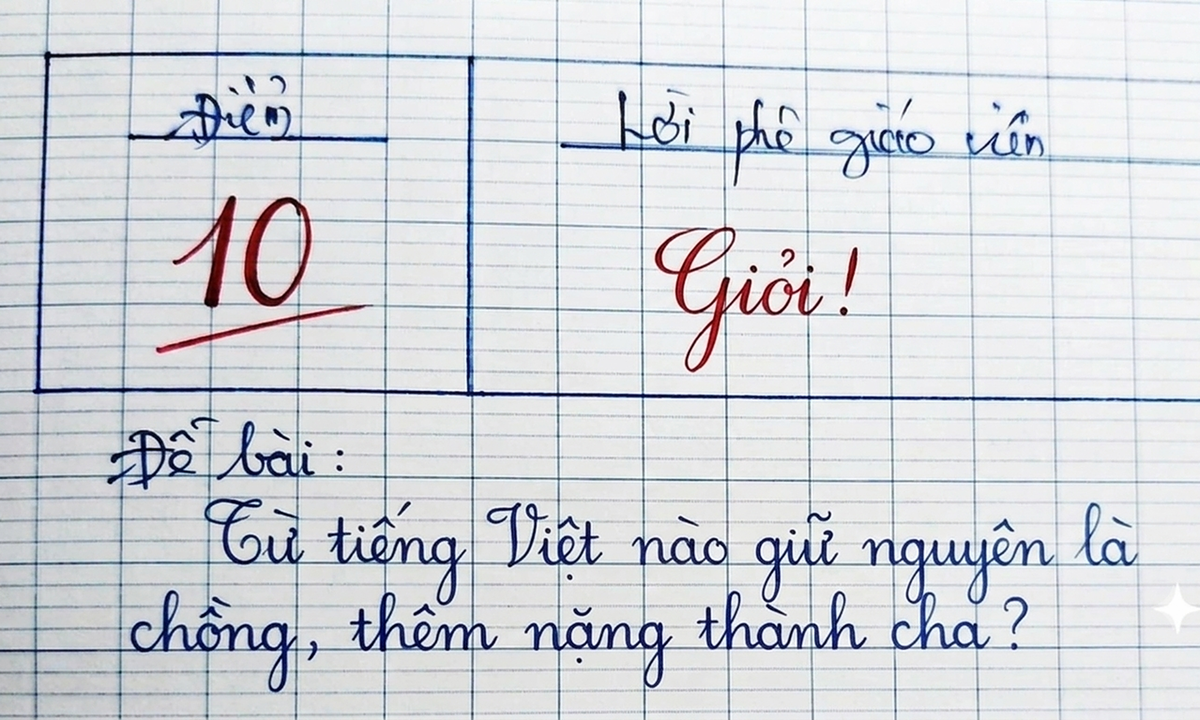 Điểm
Lời phê giáo viên
10
Giỏi!
Đề bài:
Từ tiếng Việt nào giữ nguyên là
chồng, thêm nặng thành cha?